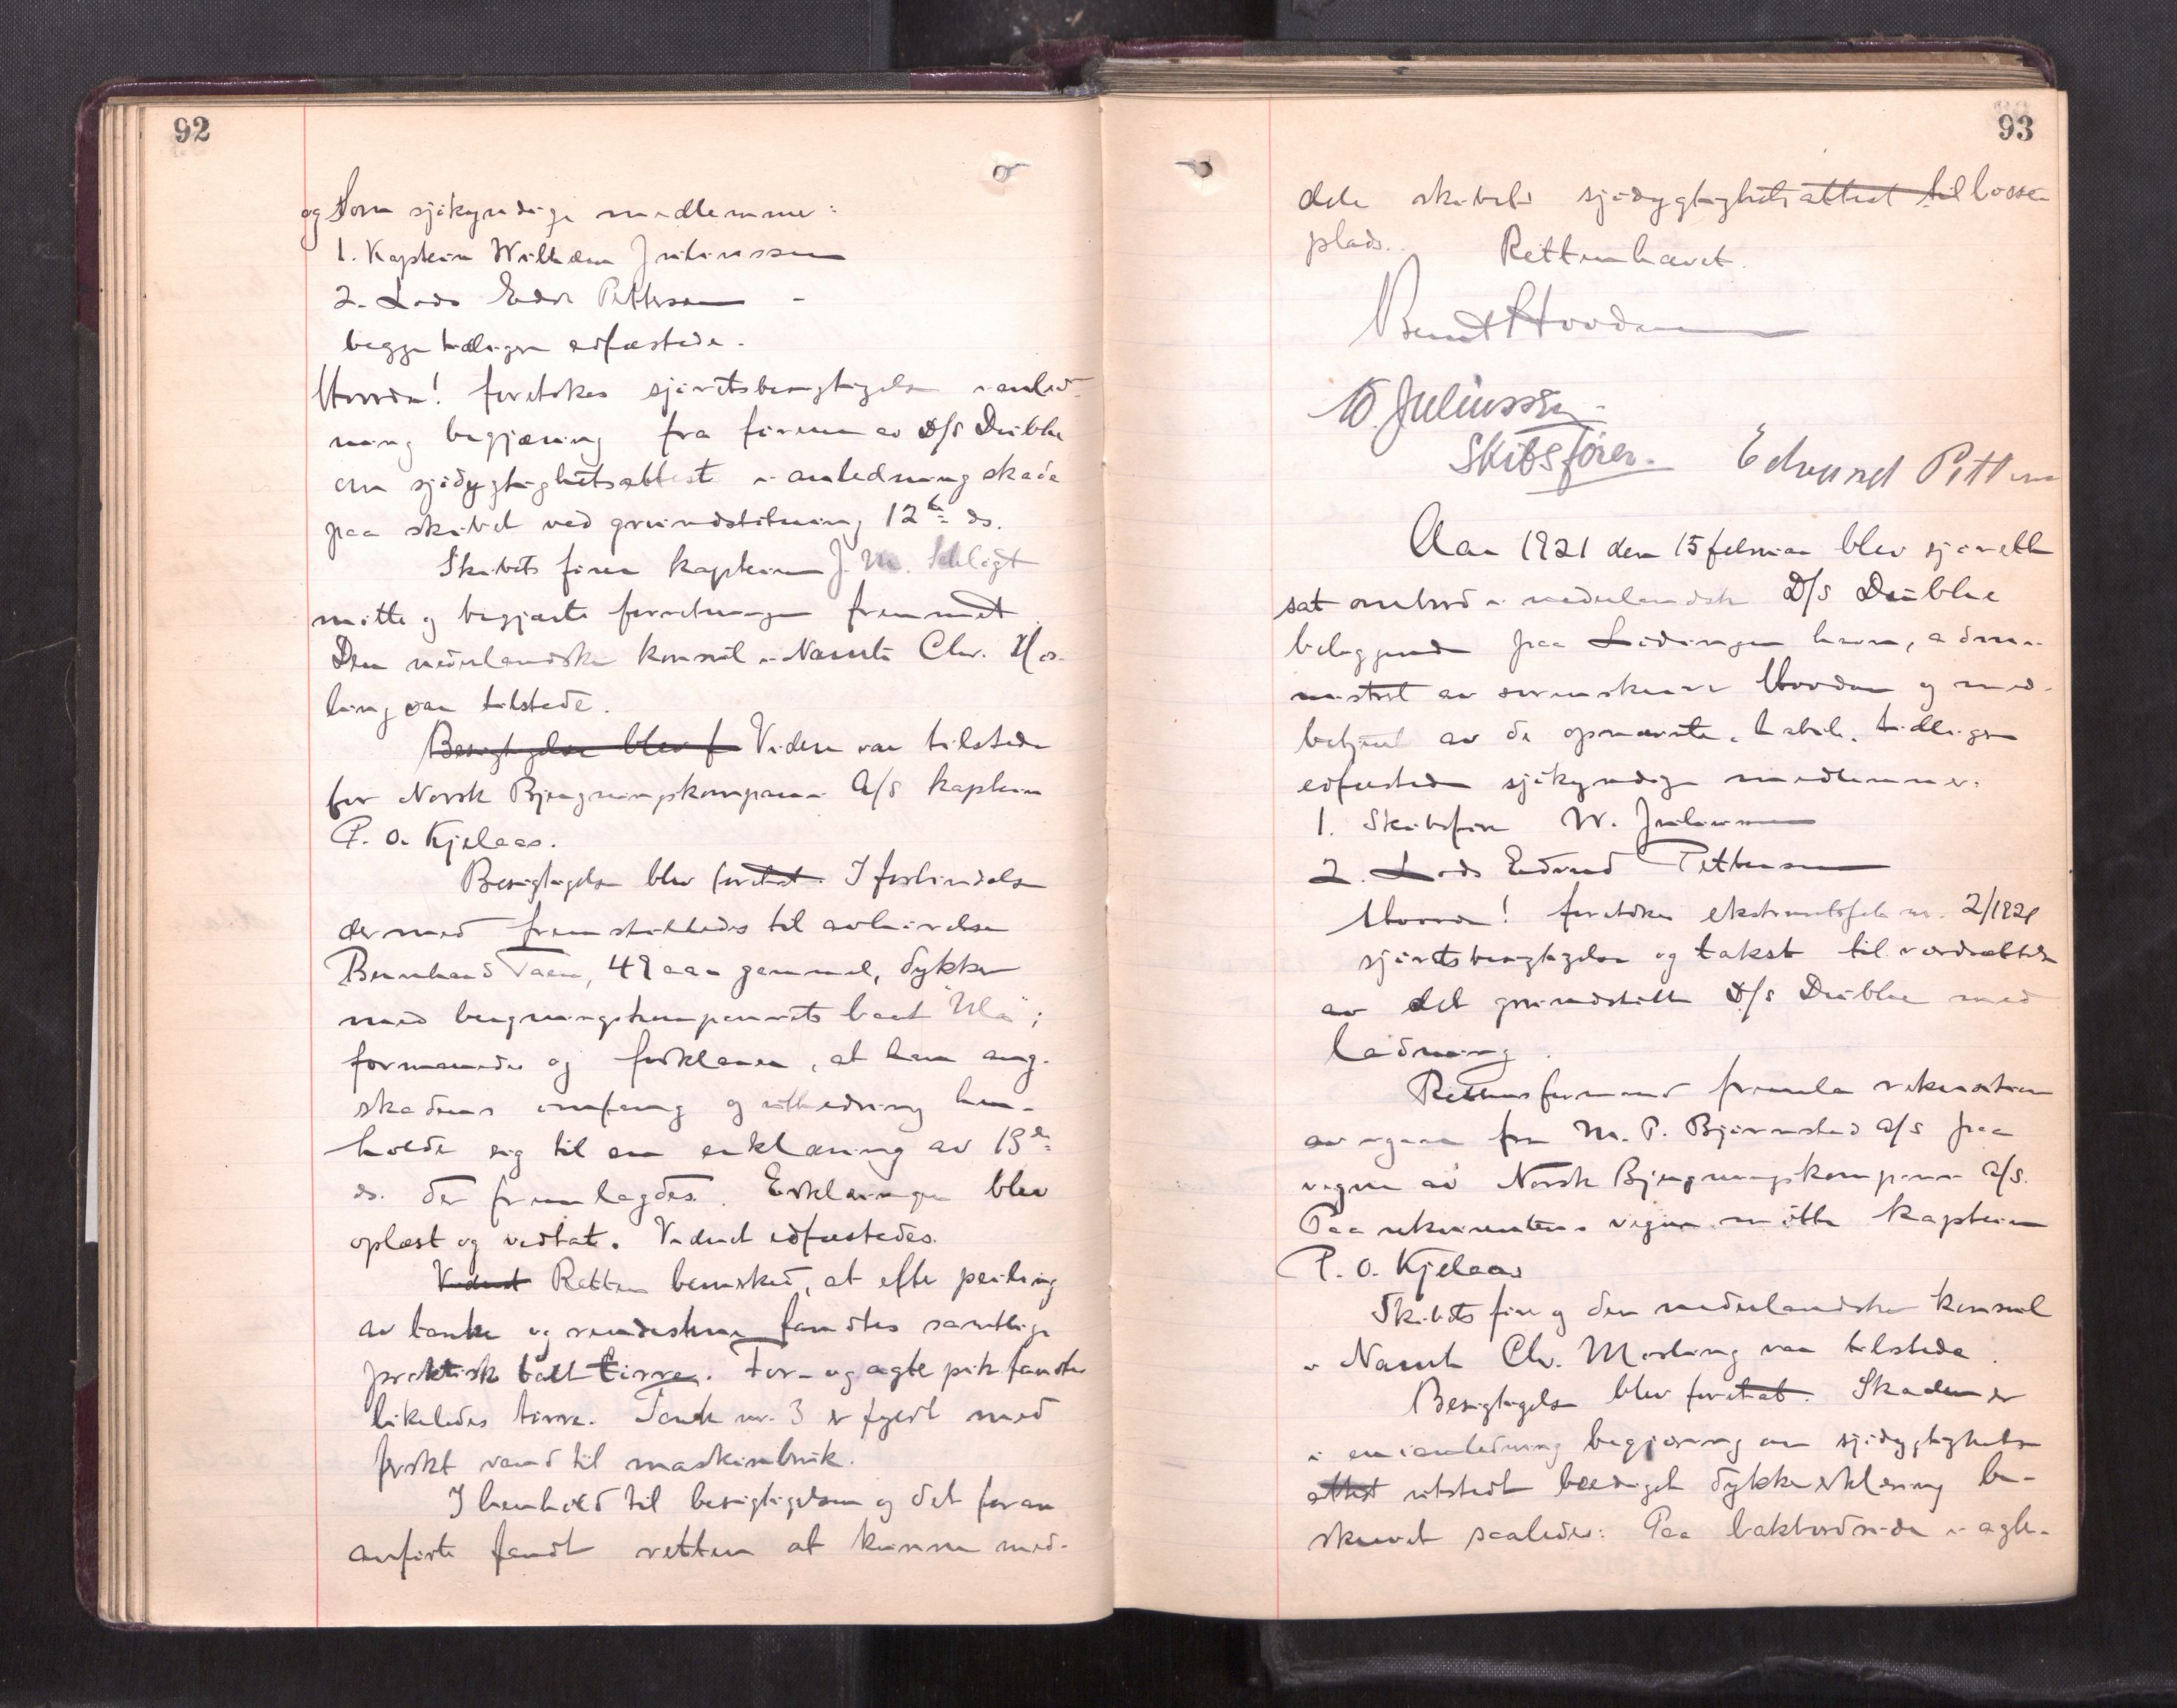 92
og som sjøkyndige medlemmer:
1. Kaptein Wilhelm Juliussen
2. Lods Edv. Pettersen –
begge tidligere edfæstede.
Hvorda! foretokes sjøretsbesigtigelse i anled-
ning begjæring fra føreren av D/S Dubhe
om sjødygtighetsattest i anledning skade
paa skibet ved grundstøtning 12te ds.
Skibets fører kaptein J. M. Schligt
møtte og begjærte forretningen fremmet.
Den nederlandske konsul i Narvik Chr. Mos-
ling var tilstede.
Besigtigelse blev f Videre var tilstede
for Norsk Bjergningskompani A/S kaptein
P. O. Kjelaas.
Besigtigelse blev foretat. I forbindelse
dermed fremstilledes til avhørelse
Bernhard Vaen, 49 aar gammel, dykker
med bergningskompaniets baat "Ula";
formanedes og forklarer, at han ang.
skadens omfang og utbedring hen-
holdt sig til en erklæring av 13de
ds. der fremlagdes. Erklæringen blev
oplæst og vedtat. Vidnet edfæstedes.
Vidnet Retten bemerket, at efter peiling
av tanke og rendestene fandtes samtlige
praktisk talt tørre. For- og agterpik fandtes
likeledes tørre. Tank nr. 3 er fyldt med
ferskt vand til maskinbruk.
I henhold til besigtigelsen og det foran
anførte fandt retten at kunne med-
93
dele skibets sjødygtighetsattest til losse-
plads. Retten hævet.
Bernt Hovden
W. Juliussen
Skibsfører. Edvard Pettersen
Aar 1921 den 15 februar blev sjørett
sat ombord i nederlandsk D/S Dubhe
beliggende paa Lødingen havn, admi-
nistret av Hovden og med-
betjent av de opnævnte, habile, tidligere
edfæstede sjøkyndige medlemmer:
1. Skibsfører W. Juliussen
2. Lods Edvard Pettersen
Hvorda! foretokes ekstraretssak nr. 2/1921
sjøretsbesigtigelse og takst til værdsættelse
av det grundstøtte D/S Dubhe med
ladning.
Rettens formand fremla rekvisition
av igaar fra M. P. Bjørnstad A/S paa
vegne av Norsk Bjergningskompani A/S.
Paa rekvirentens vegne møtte kaptein
P. O. Kjelaas
Skibets fører og den nederlandske konsul
i Narvik Chr. Mosling var tilstede.
Besigtigelse blev foretat. Skaden er
i en i anledning begjæring om sjødygtighets-
attest utstedt beediget dykkererklæring be-
skrevet saaledes: Paa bakbordside i agter-